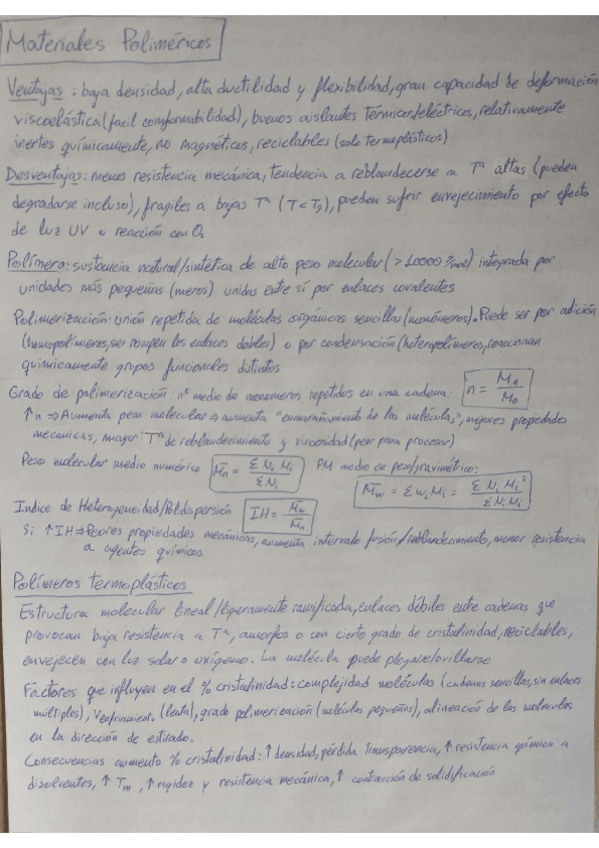 Materiales Poliméricos
Ventajas: baja densidad, alta ductilidad y flexibilidad, gran capacidad de deformación
viscoelástica (facil comformabilidad), buenos aislantes térmicos/eléctricos, relativamente
inertes químicamente, no magnéticos, reciclables (solo termoplásticos)
Desventajas: menos resistencia mecánica, tendencia a reblandecerse a Tª altas (pueden
degradarse incluso), fragiles a bajas Tª (T<Tg), pueden sufrir envejecimiento por efecto
de luz UV o reacción con O₂
Polímero: sustancia natural/sintética de alto peso molecular (>10000 g/mol) integrada por
unidades más pequeñas (meros) unidas entre sí por enlaces covalentes
Polimerización: unión repetida de moléculas orgánicas sencillas (monómeros). Puede ser por adición
(homopolímeros, se rompen los enlaces dobles) o por condensación (heteropolímeros, reaccionan
químicamente grupos funcionales distintos
Grado de polimerización: nº medio de monomeros repetidos en una cadena: n = Mₐ/M₀
↑n ⇒ Aumenta peso molecular ⇒ aumenta "enmarañamiento de las moléculas", mejores propiedades
mecanicas, mayor Tª de reblandecimiento y viscosidad (peor para procesar)
Peso molecular medio numérico M̄n = Σ Ni Mi / Σ Ni PM medio en peso/gravimétrico: M̄w = Σ wi Mi = Σ Ni Mi² / Σ Ni Mi
Indice de Heterogeneidad/Polidispersión IH = M̄w/M̄n
Si ↑IH ⇒ Peores propiedades mecánicas, aumenta intervalo fusión/reblandecimiento, menor resistencia
a agentes químicos.
Polímeros termoplásticos
Estructura molecular lineal/ligeramente ramificada, enlaces débiles entre cadenas que
provocan baja resistencia a Tª, amorfos o con cierto grado de cristalinidad, reciclables,
envejecen con luz solar o oxígeno. La molécula puede plegarse/ovillarse
Factores que influyen en el % cristalinidad: complejidad moléculas (cadenas sencillas, sin enlaces
múltiples), v enfriamiento (lenta), grado polimerización (moléculas pequeñas), alineación de las moleculas
en la dirección de estirado.
Consecuencias aumento % cristalinidad: ↑ densidad, pérdida transparencia, ↑ resistencia química a
disolventes, ↑ Tm, ↑ rigidez y resistencia mecánica, ↑ contracción de solidificación